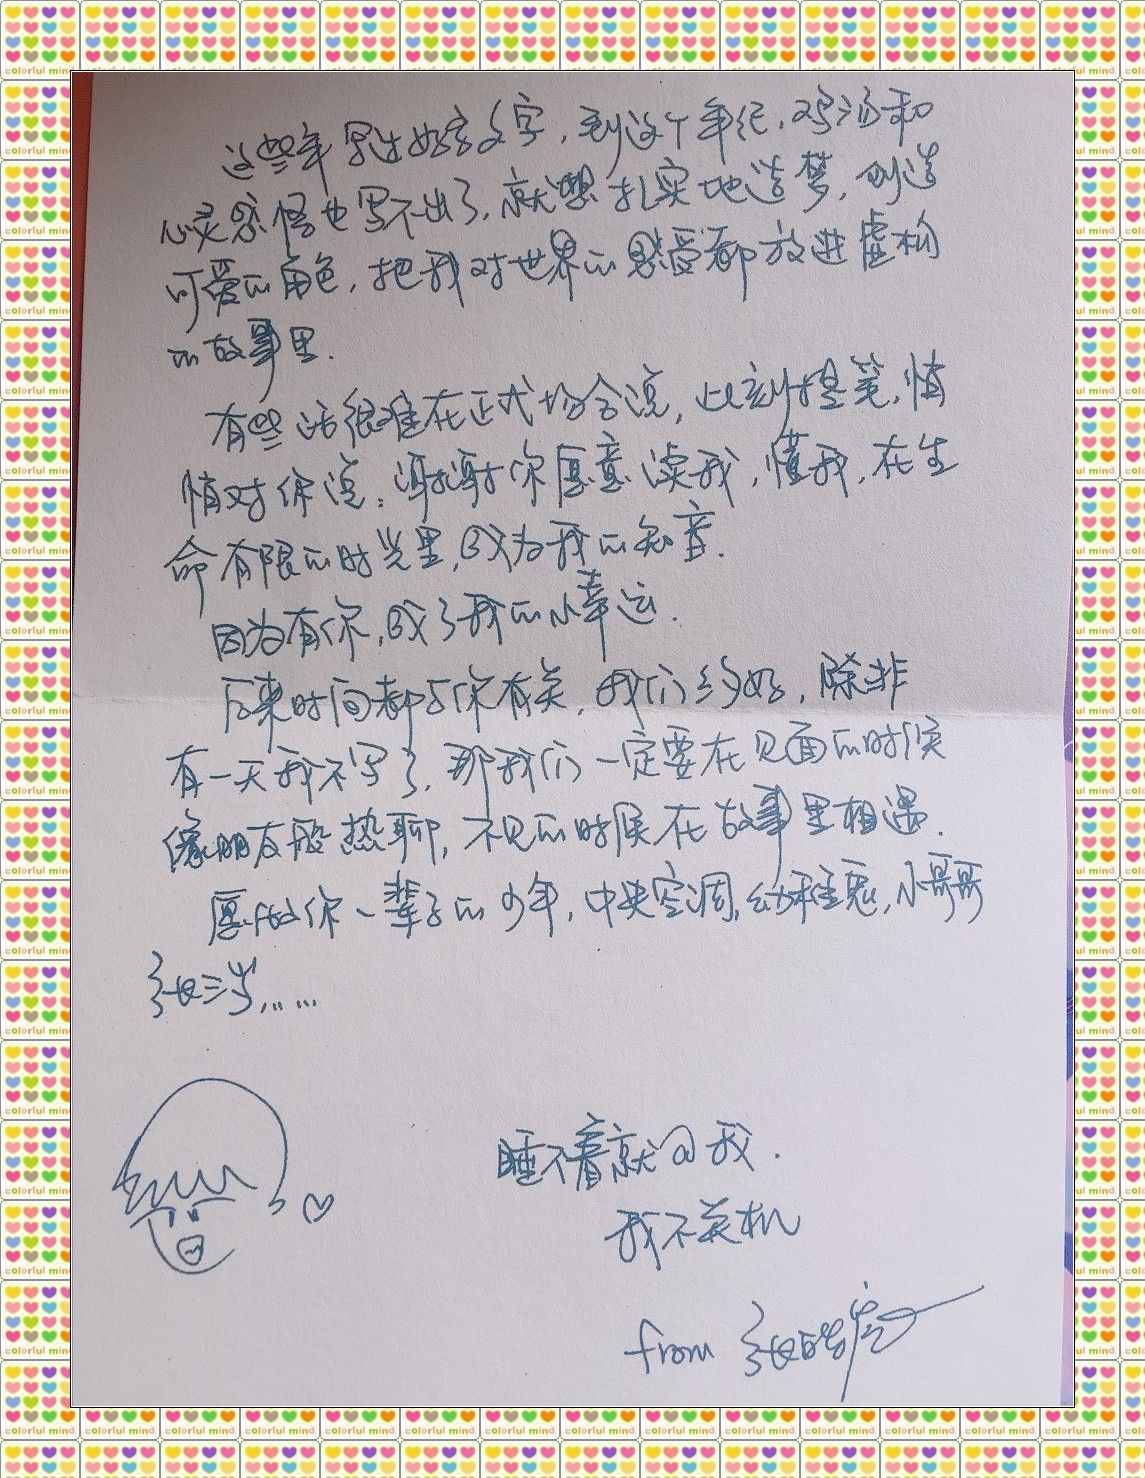 这些年写过好多文字，到这个年纪，鸡汤和
心灵感悟也写不出了，就想扎实地造梦，创造
可爱的角色，把我对世界的感受都放进虚构
的故事里.
有些话很难在正式场合说，此刻提笔，悄
悄对你说：谢谢你愿意读我，懂我，在生
命有限的时光里，成为我的知音.
因为有你，成了我的小幸运.
后来时间都与你有关，我们约好，除非
有一天我不写了，那我们一定要在见面的时候
像朋友般热聊，不见的时候在故事里相遇.
愿做你一辈子的少年，中央空调，幼稚鬼，小哥哥
张三岁……
睡不着就@我.
我不关机
from 张皓宸
colorful mind